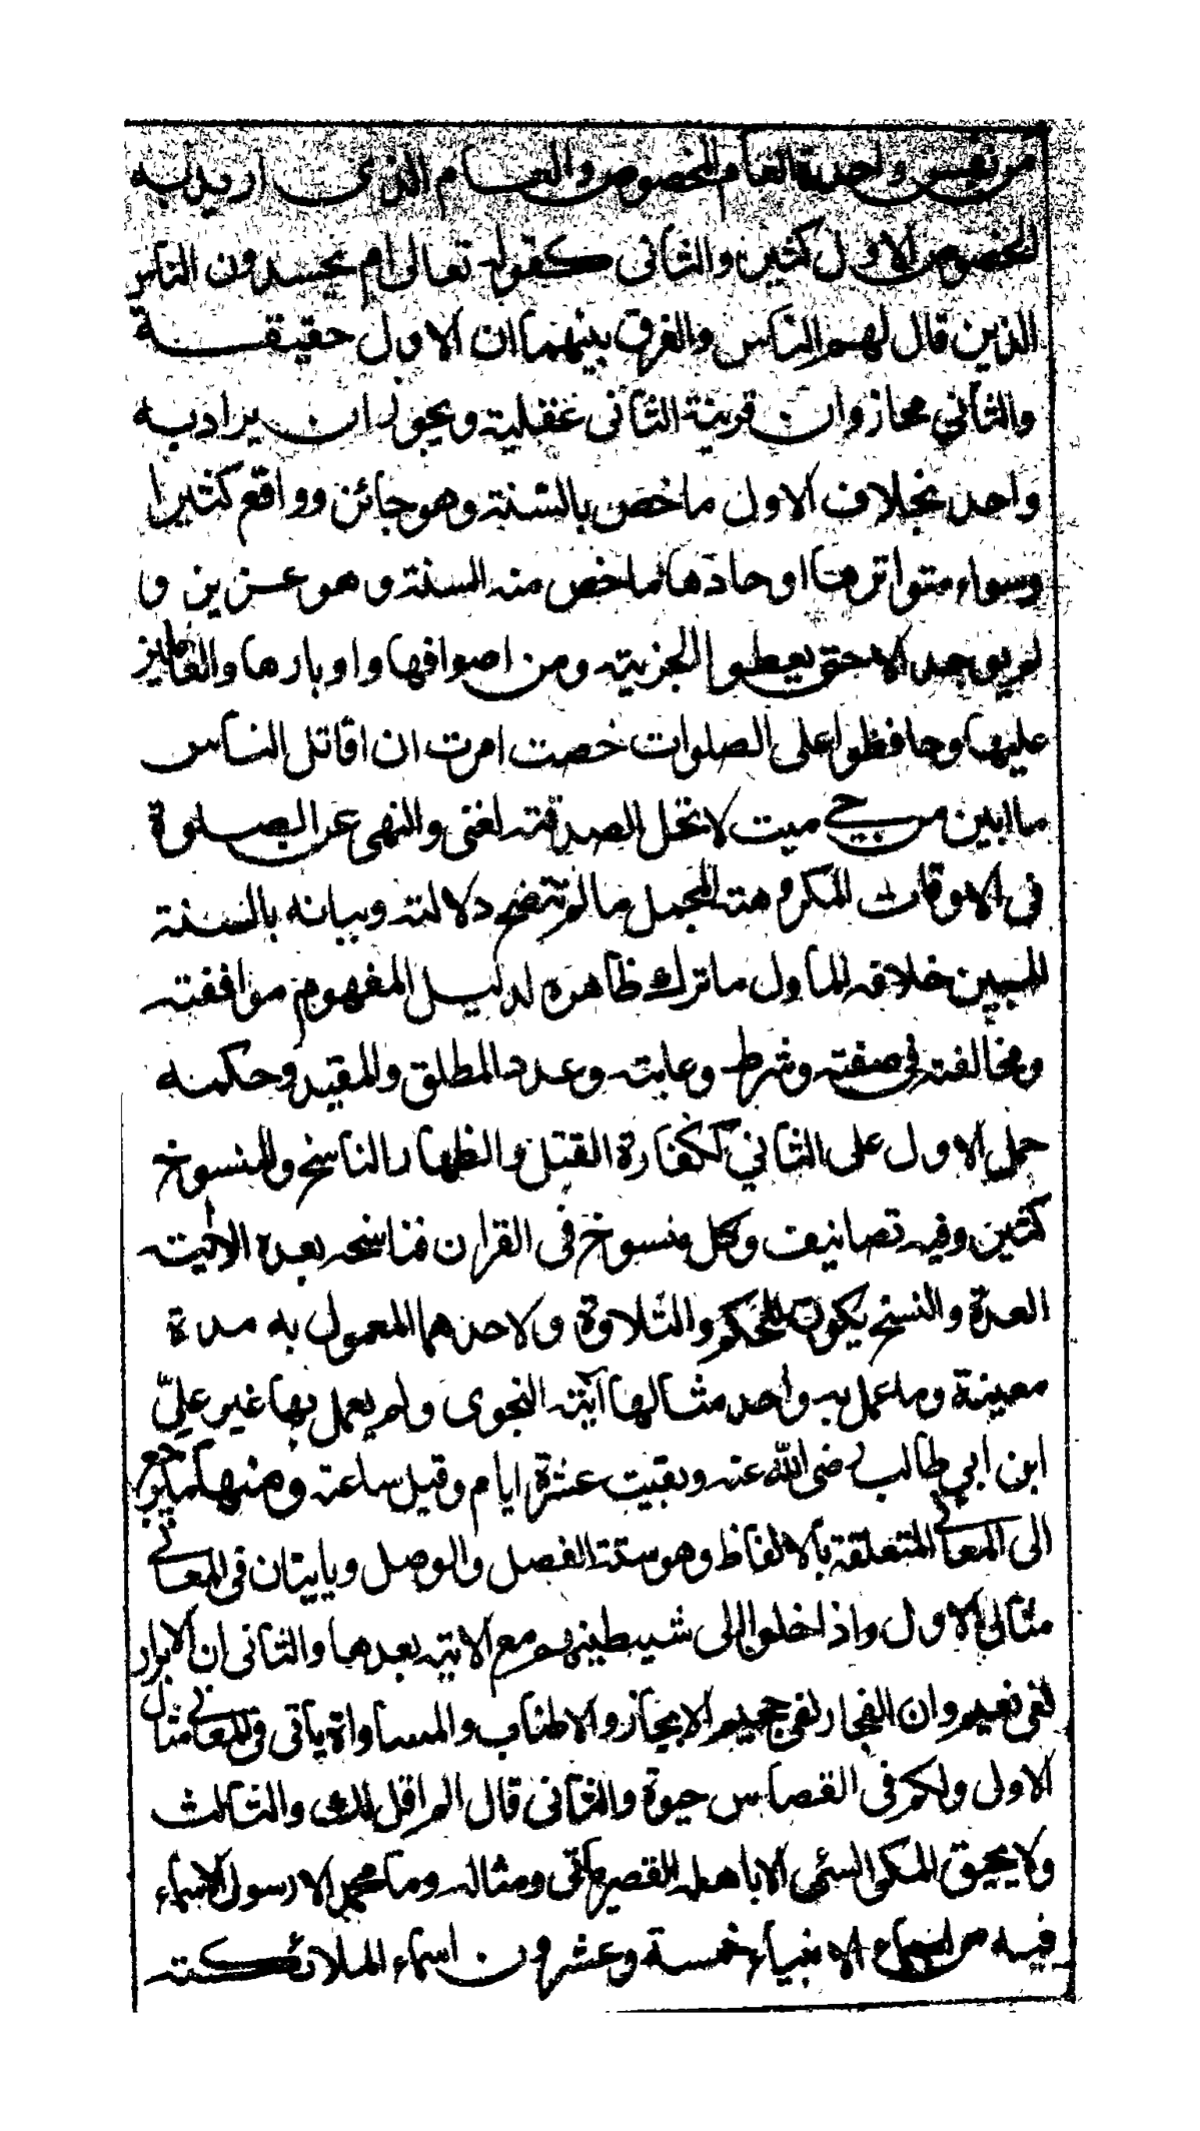 من نفس واحدة العام المخصوص والعام الذى اريد به
الخصوص الاول كثير والثانى كقوله تعالى ام يحسدون الناس
الذين قال لهم الناس والفرق بينهما ان الاول حقيقة
والثاني مجاز وان قرينة الثانى عقلية ويجوز ان يراد به
واحد بخلاف الاول ماخص بالسنة وهو جائز وواقع كثيرا
وسواء متواترها او حادها ماخص منه السنة وهو عزيز و
لم يوجد الا حتى يعطوا الجزية ومن اصوافها واوبارها والعاملين
عليها وحافظوا على الصلوات خصت امرت ان اقاتل الناس
ما ابين من حي ميت لا تحل الصدقة لغنى والنهى عن الصلوة
فى الاوقات المكروهة المجمل ما لم تتضح دلالته وبيانه بالسنة
المبين خلافه الماول ماترك ظاهره لدليل المفهوم موافقته
ومخالفته فى صفته وشرط وغاية وعدد المطلق والمقيد وحكمه
حمل الاول على الثاني ككفارة القتل والظهار الناسخ والمنسوخ
كثير وفيه تصانيف وكل منسوخ فى القران فناسخه بعده الا آية
العدة والنسخ يكون للحكم والتلاوة ولاحدهما المعمول به مدة
معينة وما عمل به واحد مثالها آية النجوى ولم يعمل بها غير علىّ
ابن ابي طالب رضى الله عنه وبقيت عشرة ايام وقيل ساعة ومنها ما يرجع
الى المعاني المتعلقة بالالفاظ وهو ستة الفصل والوصل وياتيان فى المعاني
مثال الاول واذا خلوا الى شيطينهم مع الاية بعدها والثانى ان الابرار
لفى نعيم وان الفجار لفى جحيم الايجاز والاطناب والمساواة ياتى فى المعاني مثال
الاول ولكم فى القصاص حيوة والثانى قال الم اقل لك والثالث
ولا يحيق المكر السئى الا باهله القصر ياتى ومثاله وما محمد الا رسول الاسماء
فيه من اسماء الانبياء خمسة وعشرون اسماء الملائكة